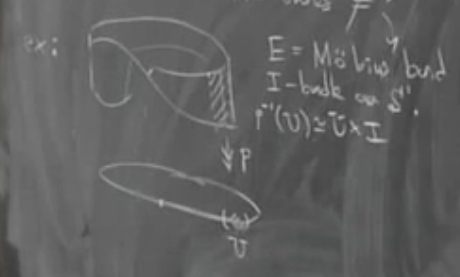 ex:
E = Möbius band
I-bundle over S¹.
p⁻¹(U) ≅ U × I
p
U